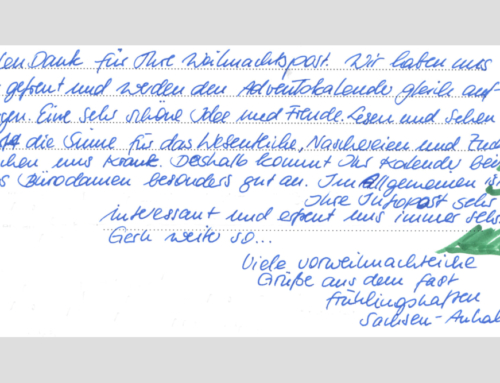 len Dank für Ihre Weihnachtspost. Wir haben uns
gefreut und werden den Adventskalender gleich auf-
gen. Eine sehr schöne Idee und Freude. Lesen und sehen
die Sinne für das Wesentliche, Naschereien und Zuc
chen uns krank. Deshalb kommt Ihr Kalender bei
s Bürodamen besonders gut an. Im Allgemeinen
Ihre Infopost sehr
interessant und erfreut uns immer sehr.
Gern weiter so...
Viele vorweihnachtliche
Grüße aus dem fast
frühlingshaften
Sachsen-Anhal